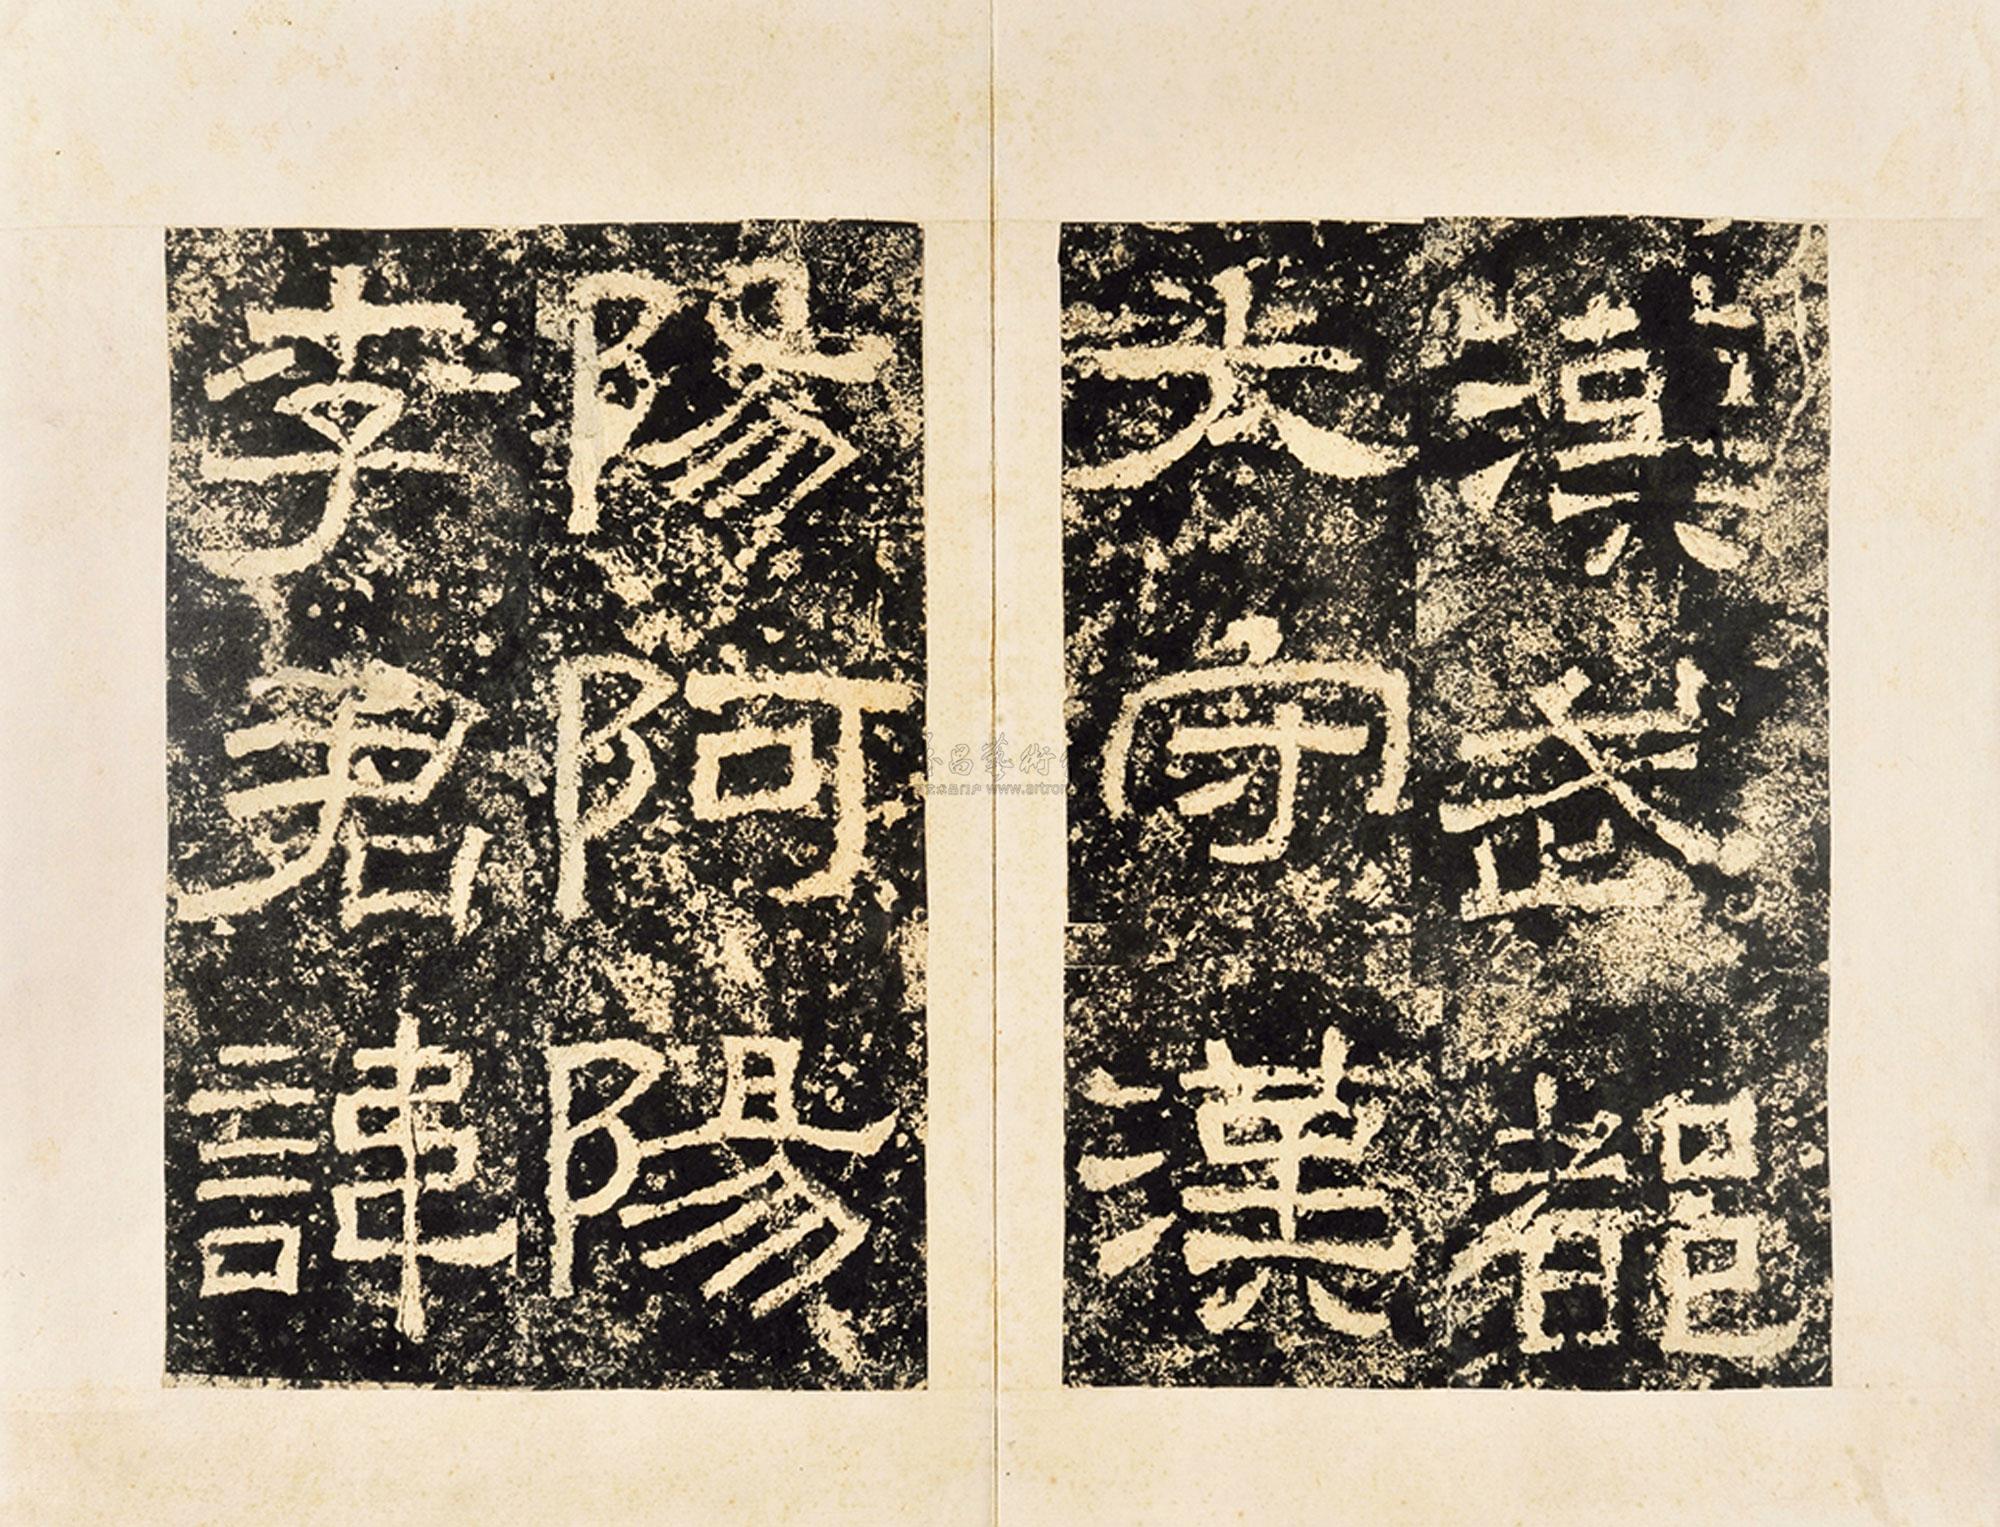 漢武都
太守漢
陽阿陽
李君諱
昌藝術
www.artron